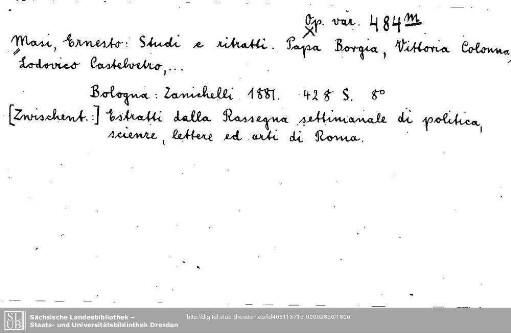 Op. var. 484ᵐ
Masi, Ernesto: Studi e ritratti. Papa Borgia, Vittoria Colonna,
Lodovico Castelvetro,...
Bologna: Zanichelli 1881. 428 S. 8°
[Zwischent.:] Estratti dalla Rassegna settimanale di politica,
scienze, lettere ed arti di Roma.
SLUB
Sächsische Landesbibliothek –
Staats- und Universitätsbibliothek Dresden